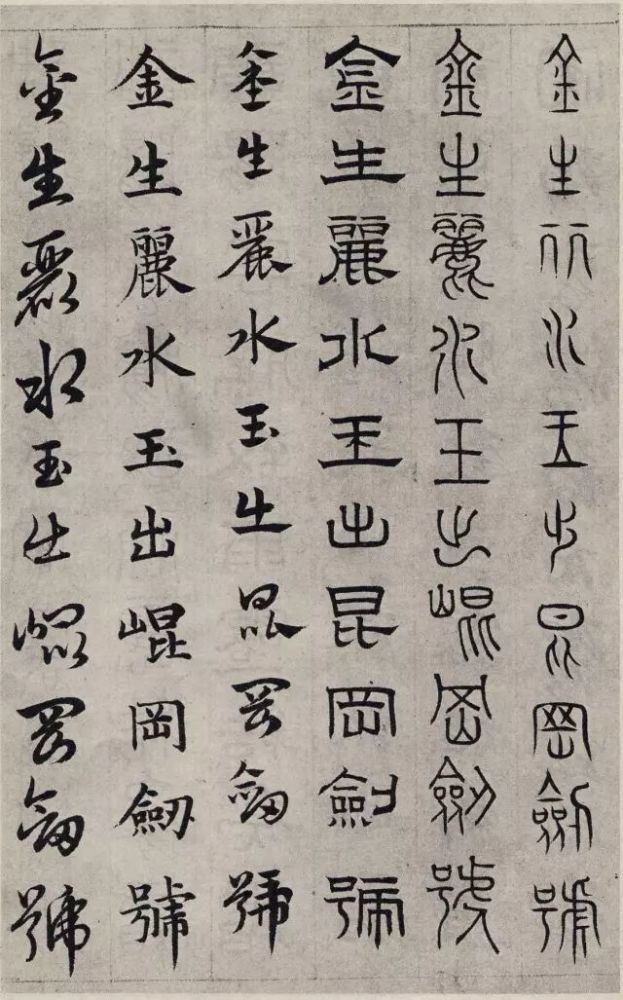 金生麗水玉出崑岡劍號
金生麗水玉出崑岡劍號
金生麗水玉出昆岡劍號
金生麗水玉出崑岡劍號
金生麗水玉出崑岡劍號
金生麗水玉出崑岡劍號